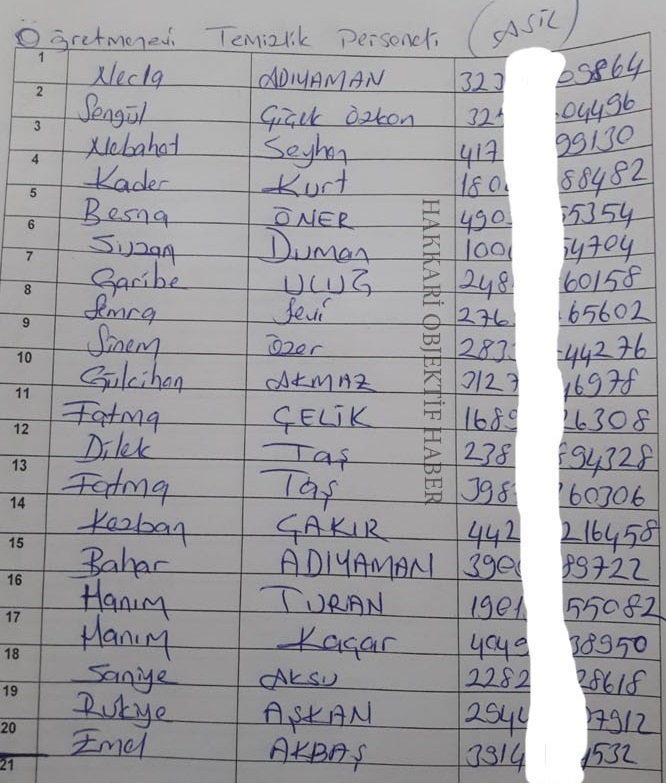 Öğretmenevi Temizlik Personeli (ASİL)
1 Necla ADIYAMAN 323 09864
2 Şengül Çiçek Özkan 32 04496
3 Nebahat Seyhan 417 99130
4 Kader Kurt 180 88482
5 Besna ÖNER 490 55354
6 Suzan Duman 100 54704
7 Garibe ULUĞ 248 60158
8 Semra Sevi 276 65602
9 Sinem Özer 283 44276
10 Gülcihan AKMAZ 3127 16978
11 Fatma ÇELİK 1689 26308
12 Dilek Taş 238 94328
13 Fatma Taş 398 60306
14 Kezban ÇAKIR 442 216458
15 Bahar ADIYAMAN 390 89722
16 Hanım TURAN 1901 55082
17 Hanım Kaçar 4049 38950
18 Saniye AKSU 2282 28618
19 Rukiye AŞKAN 2944 07912
20 Emel AKBAŞ 3914 1532
21
HAKKARİ OBJEKTİF HABER